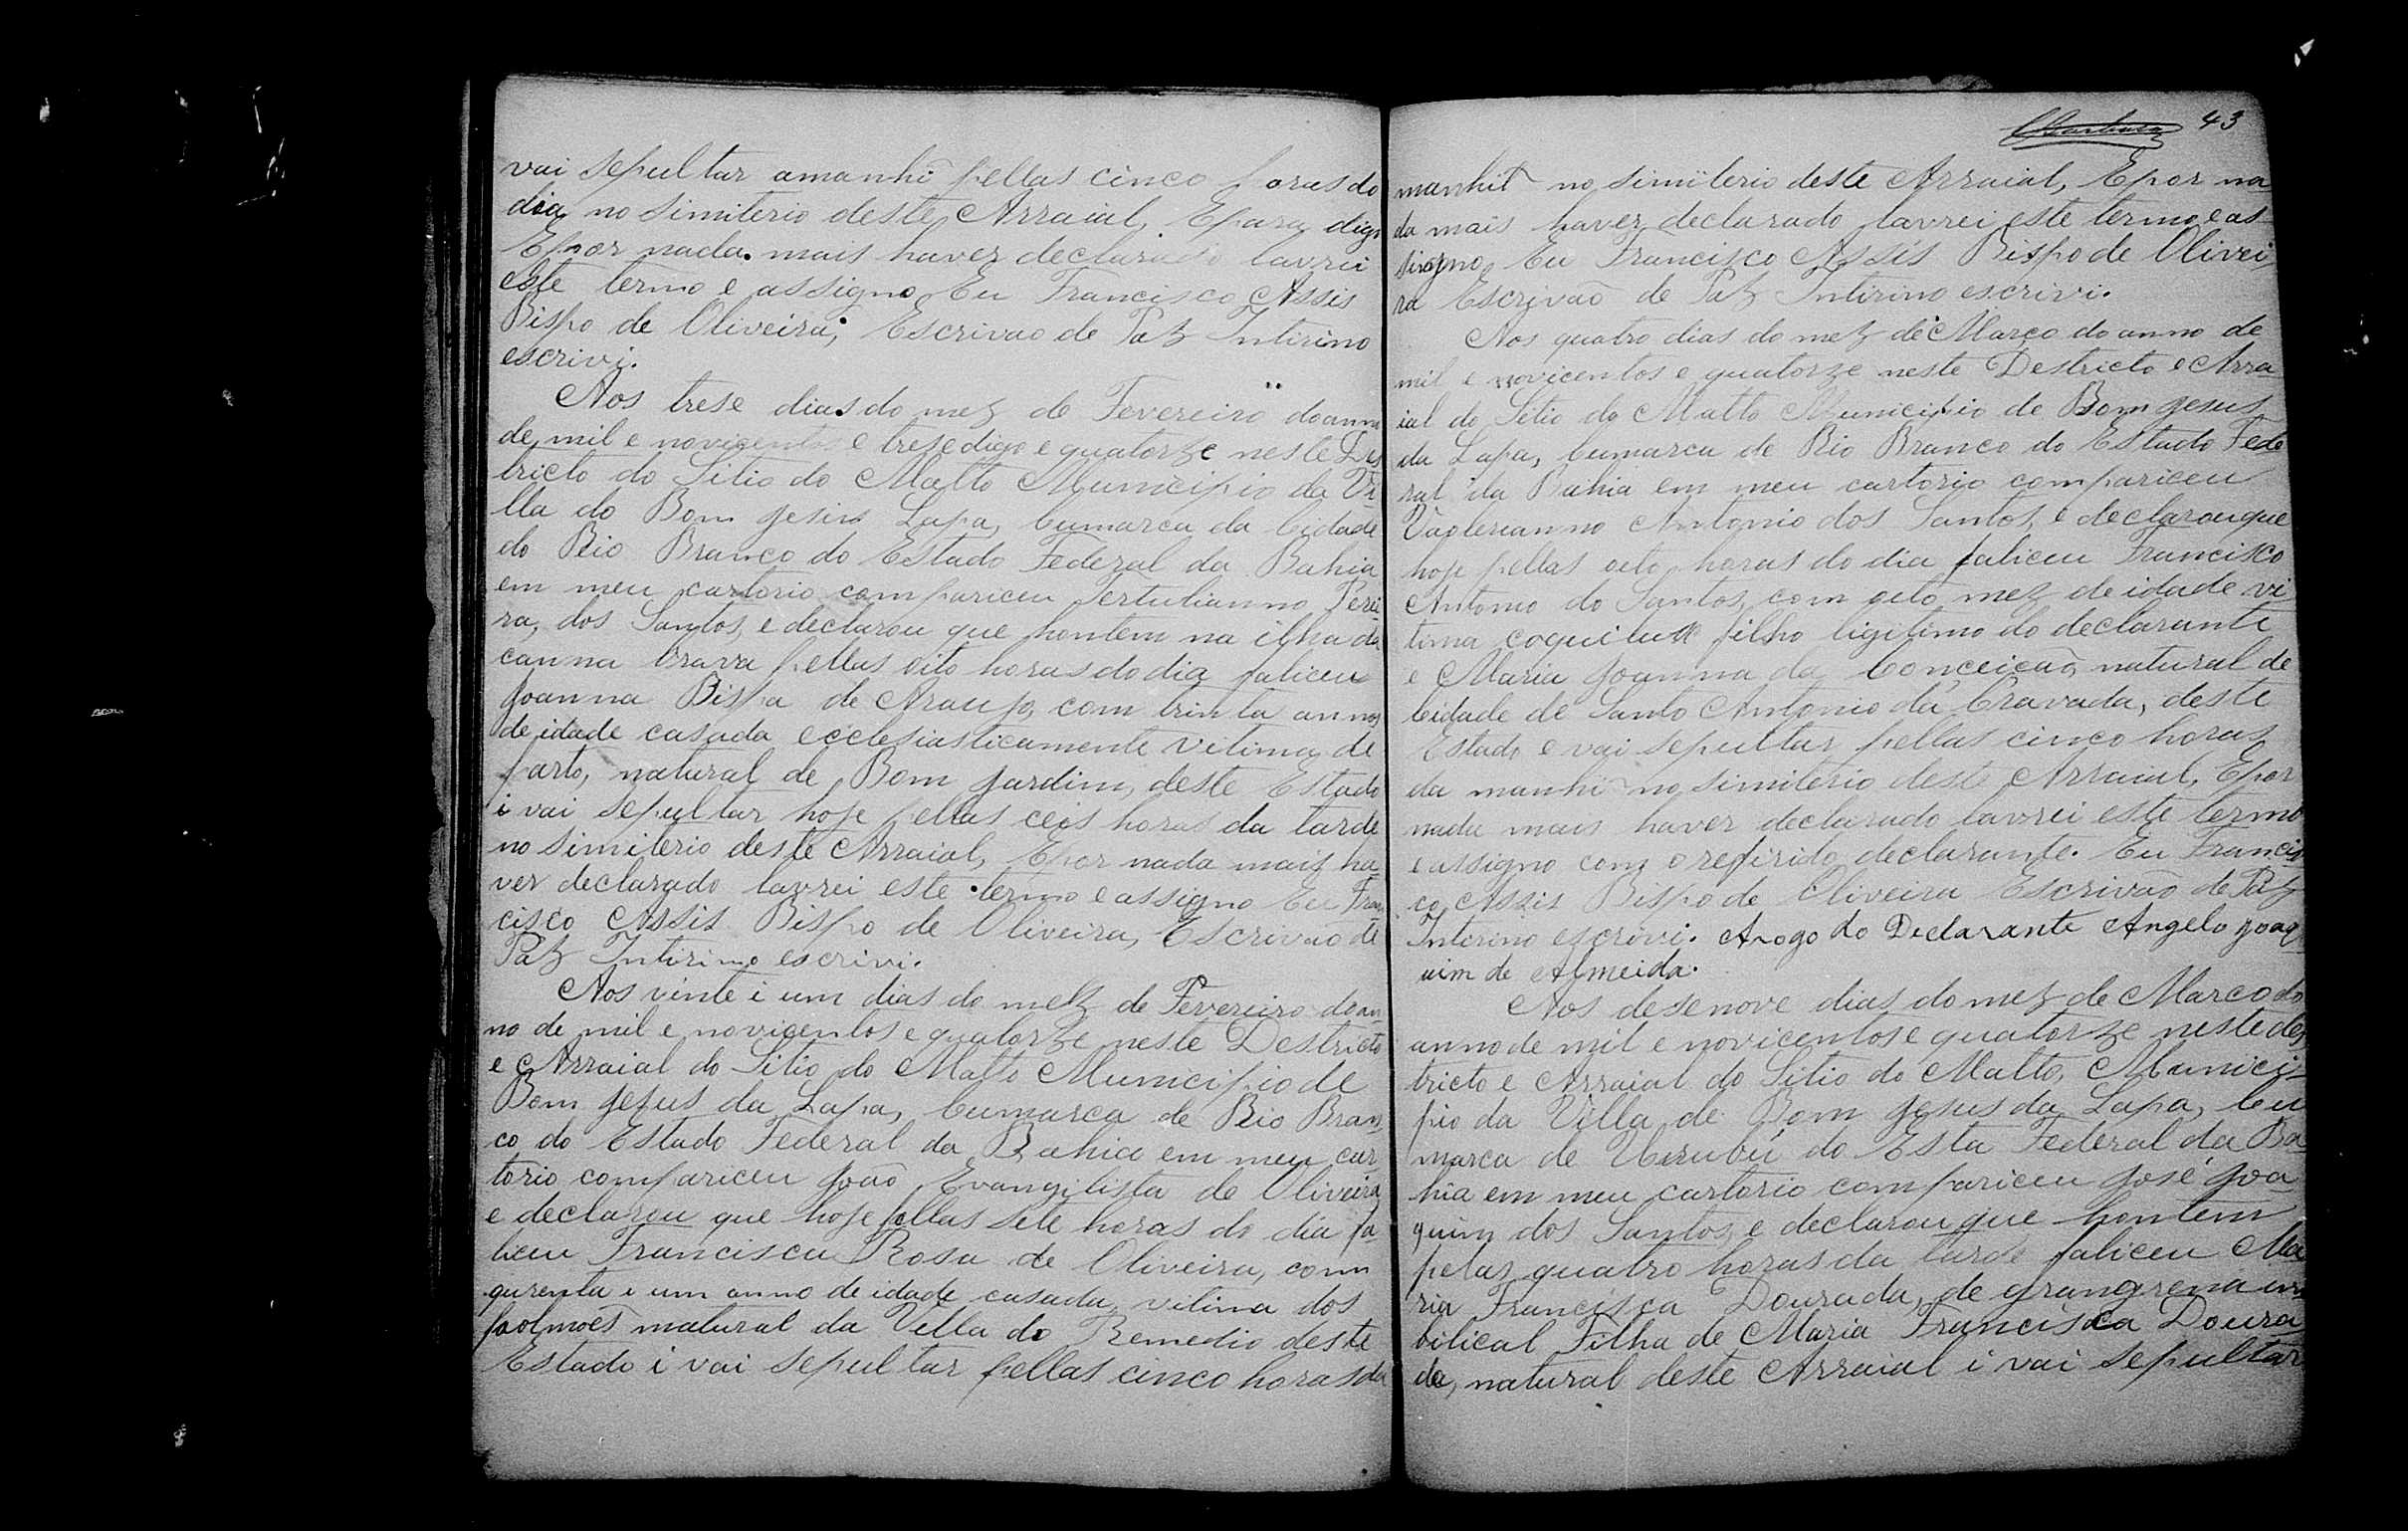 vai sepultar amanhi pellas cinco horas do
dia no simiterio deste Arraial, E para digo
E por nada mais haver declarado lavrei
este termo e assigno Eu Francisco Assis
Bispo de Oliveira, Escrivão de Paz Intirino
escrivi.
Aos trese dias do mez de Fevereiro do anno
de mil e novicentos e trese digo e quatorze neste Dis
tricto do Sitio do Matto Municipio da Vi-
lla do Bom Jesus Lapa, Cumarca da Cidade
do Rio Branco do Estado Federal da Bahia
em meu cartorio compariceu Tertulianno Perei-
ra, dos Santos, e declarou que hontem na ilha da
canna brava pellas oito horas do dia faliceu
Joanna Bispa de Araujo, com trinta annos
de idade casada ecclesiasticamente vitima de
parto, natural de Bom Jardim, deste Estado
i vai sepultar hoje pellas ceis horas da tarde
no simiterio deste Arraial, E por nada mais ha-
ver declarado lavrei este termo e assigno Eu Fran-
cisco Assis Bispo de Oliveira, Escrivão de
Paz Intirino escrivi.
Aos vinte i um dias do mez de Fevereiro do an-
no de mil e novicentos e quatorze neste Destricto
e Arraial do Sitio do Matto Municipio de
Bom Jesus da Lapa, Cumarca de Rio Bran-
co do Estado Federal da Bahia em meu car-
torio compariceu João Evangilista de Oliveira
e declarou que hoje pellas sete horas do dia fa-
liceu Francisca Rosa de Oliveira, com
qurenta i um anno de idade casada, vitima dos
poolmoẽs natural da Villa do Remedio deste
Estado i vai sepultar pellas cinco horas da
43
manhit no simiterio deste Arraial, E por na
da mais haver declarado lavrei este termo e as-
signo, Eu Francisco Assis Bispo de Olivei
ra Escrivão de Paz Intirino escrivi.
Aos quatro dias do mez de Março do anno de
mil e novicentos e quatorze neste Destricto e Arra
ial do Sitio do Matto Municipio de Bom Jesus
da Lapa, Cumarca de Rio Branco do Estado Fede
ral da Bahia em meu cartorio compariceu
Vaolerianno Antonio dos Santos, e declarou que
hoje pellas oito horas do dia faliceu Francisco
Antonio do Santos, com oito mez de idade vi
tima coquiluxe filho ligitimo do declarante
e Maria Joanna da Conceição, natural de
Cidade de Santo Antonio da Cravada, deste
Estado e vai sepultar pellas cinco horas
da manhi no simiterio dest Arraial, E por
nada mais haver declarado lavrei este termo
e assigno com o refirido declarante. Eu Francis
co Assis Bispo de Oliveira Escrivão de Paz
Intirino escrivi. Arogo do Declarante Angelo Joaq
uim de Almeida.
Aos desenove dias do mez de Marco do
anno de mil e novicentos e quatorze neste des
tricto e Arraial do Sitio do Matto, Munici-
pio da Villa de Bom Jesus da Lapa, Cu
marca de Urubú do Esta Federal da Ba
hia em meu cartorio compariceu José Joa
quim dos Santos, e declarou que hontem
pelas quatro horas da tarde faliceu Ma
ria Francisca Dourada, de grangrena um
bilical Filha de Maria Francisca Doura
da, natural deste Arraial i vai sepultar